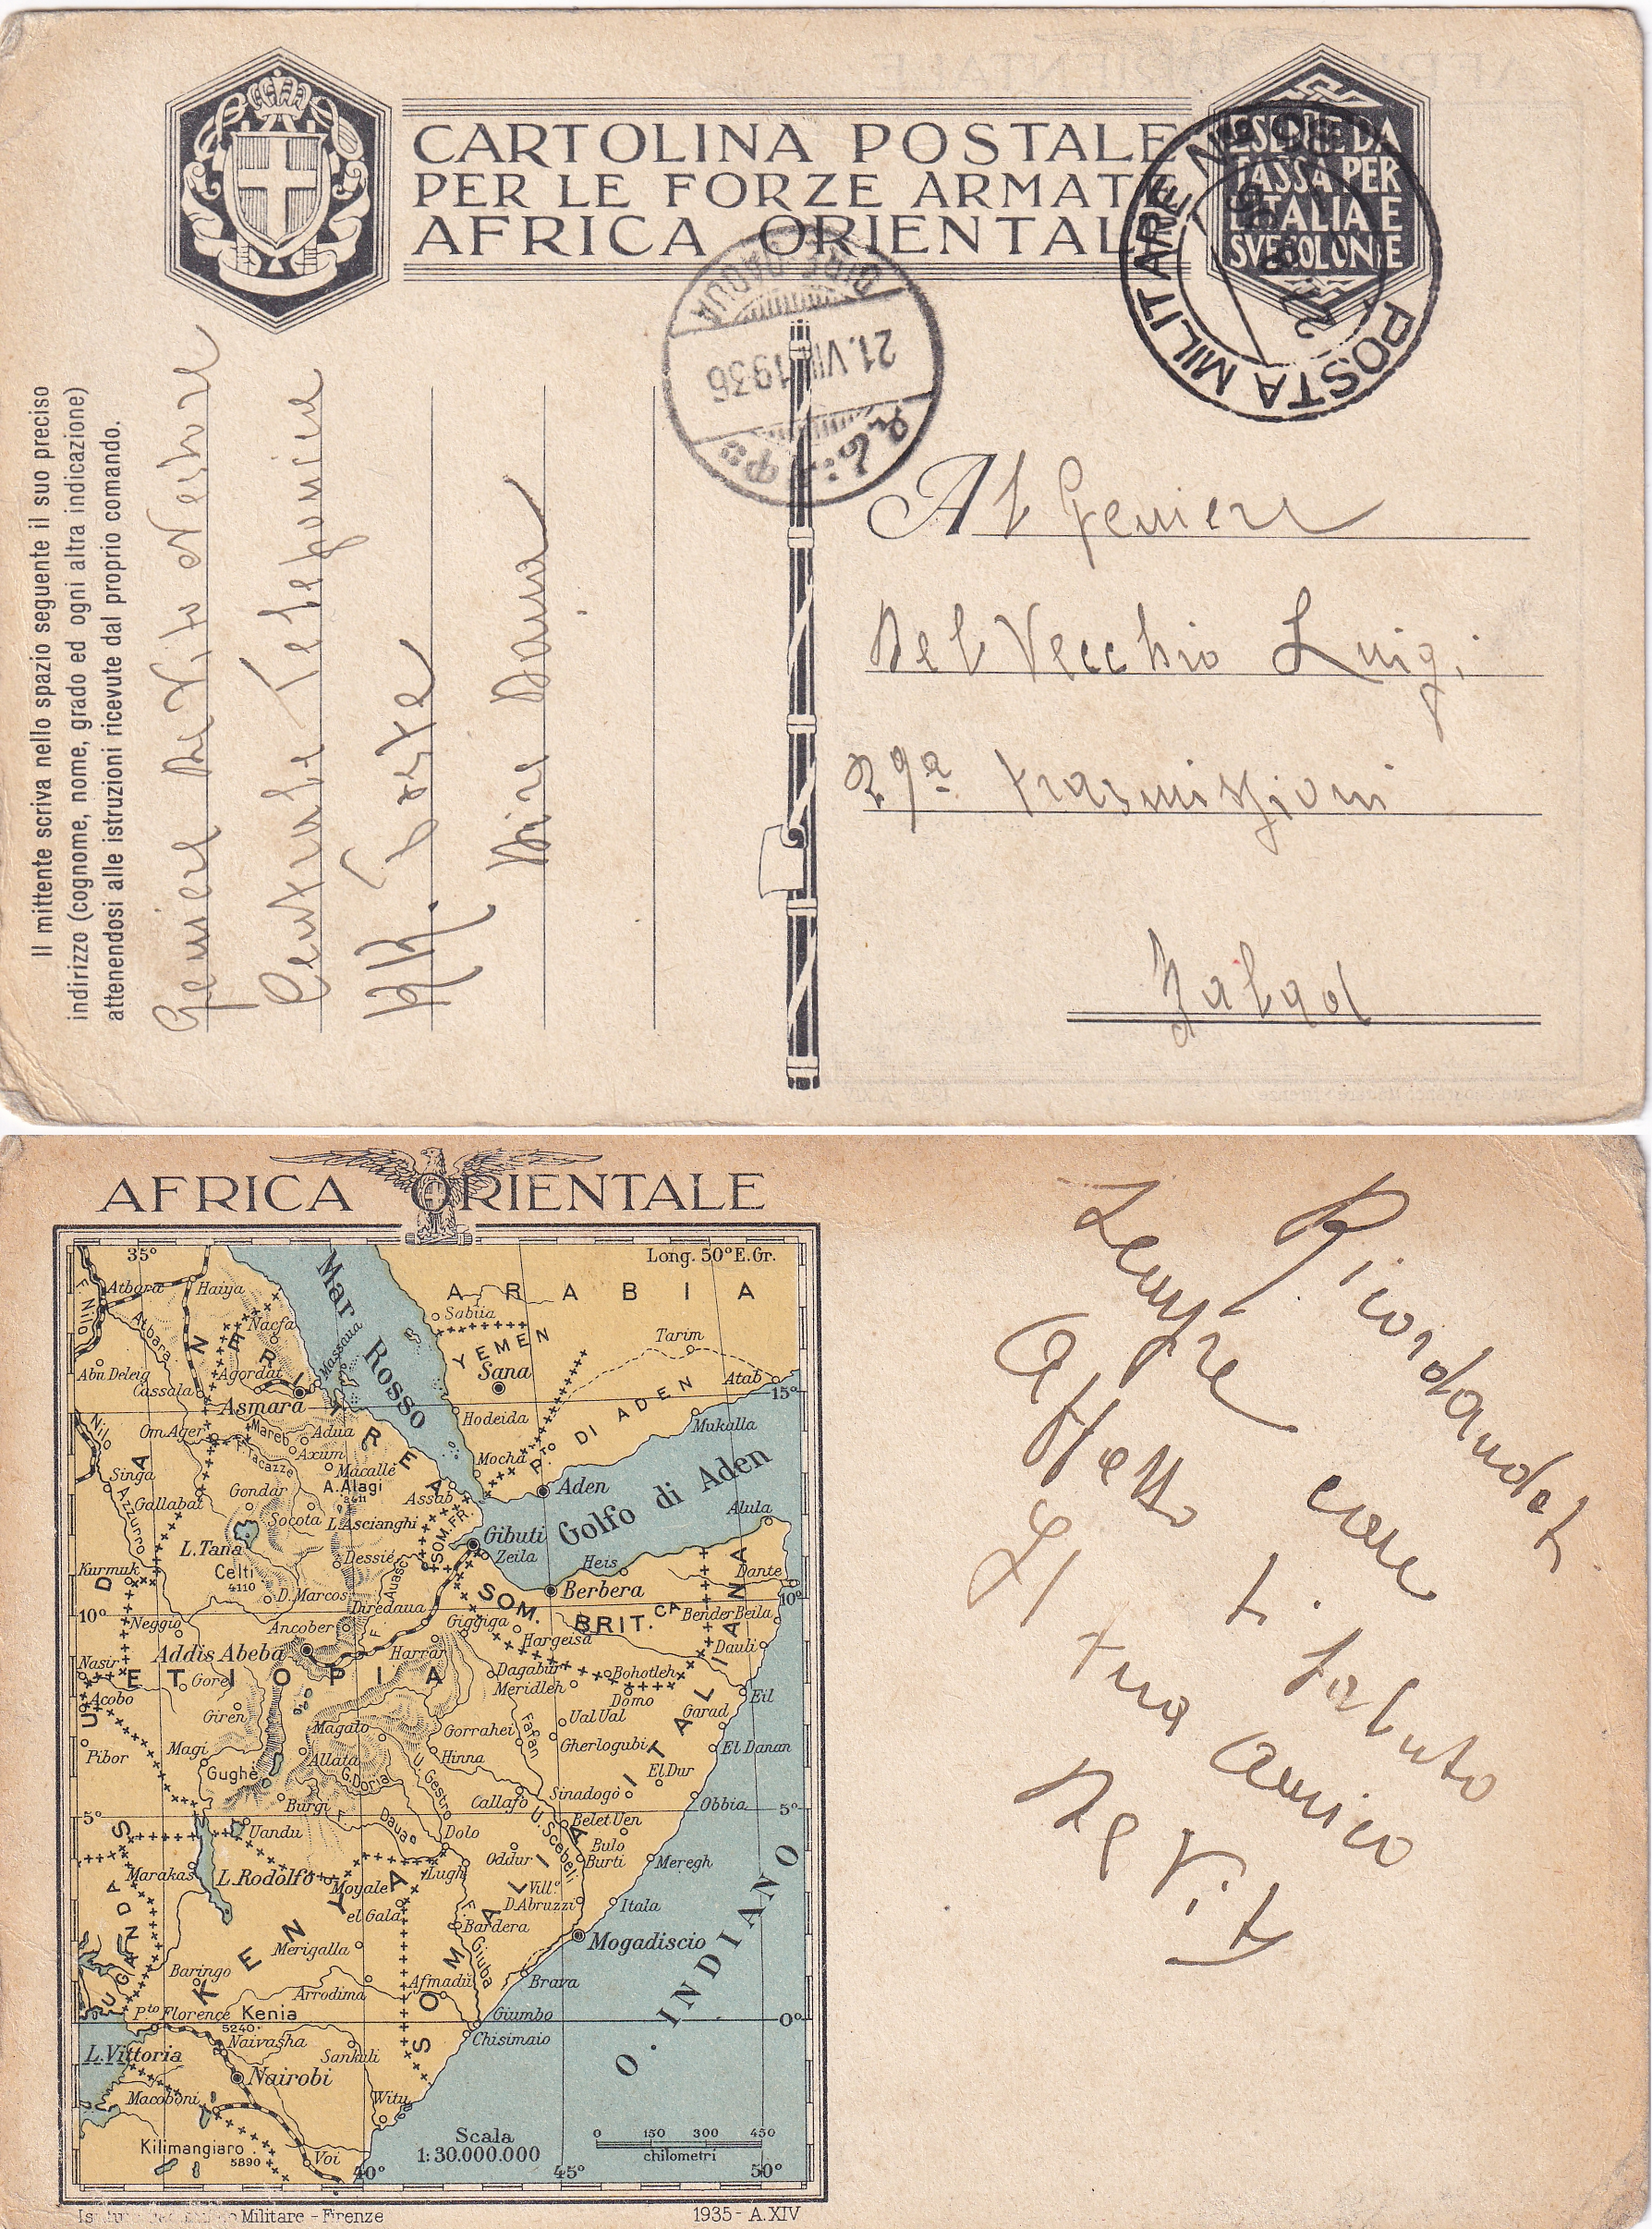 CARTOLINA POSTALE
PER LE FORZE ARMATE
AFRICA ORIENTALE
ESENTE DA
TASSA PER
L'ITALIA E
SUE COLONIE
POSTA MILITARE No
DIRE DAOUA
21.VIII.1936
Il mittente scriva nello spazio seguente il suo preciso
indirizzo (cognome, nome, grado ed ogni altra indicazione)
attenendosi alle istruzioni ricevute dal proprio comando.
Geniere De Vito Nestore
Centrale Telefonica
RR. Poste
Dire Daua
Al Geniere
Del Vecchio Luigi
29ª trasmissioni
AFRICA ORIENTALE
35°
Long. 50° E.Gr.
Atbara
Haiya
F. Nilo
Atbara
Mar Rosso
ARABIA
Sabiia
YEMEN
Tarim
Nacfa
Massaua
Abu Deleig
Cassala
Agordat
Asmara
Sana
Atab
15°
ERITREA
Hodeida
P.to DI ADEN
Mukalla
Nilo
Om Ager
Mareb
Adua
Axum
F. Tacazzè
Macallè
Mocha
Singa
Azzurro
Gallabat
Gondar
A. Alagi
Assab
Aden
Golfo di Aden
Alula
Socota
L. Ascianghi
SOM. FR.
Gibuti
Zeila
L. Tana
Dessiè
Heis
Kurmuk
Celti
4110
Auasc
Dante
D. Marcos
Berbera
10°
10°
Neggio
Diredaua
Giggiga
SOM. BRIT.CA
Bender Beila
Ancober
Hargeisa
Addis Abeba
Harrar
Dauli
Nasir
ETIOPIA
Dagabur
Bohotleh
Gore
Meridleh
Domo
Eil
Acobo
Giren
Magalo
Gorrahei
Fafan
Ual Ual
Garad
Pibor
Magi
Allata
Hinna
Gherlogubi
El Danan
Gughè
G. Doria
U. Gestro
El Dur
Sinadogò
Callafo
Burgi
F. Daua
Obbia
5°
5°
Uandu
Dolo
U. Scebeli
Belet Uen
Bulo Burti
Oddur
Meregh
Marakas
L. Rodolfo
Moyale
Lugh
Vill.º D. Abruzzi
Itala
el Gala
Bardera
UGANDA
SUD
KENYA
Merigalla
Giuba
Mogadiscio
Baringo
Arrodima
Afmadù
Brava
O. INDIANO
P.to Florence
Kenia
5240
Giumbo
0°
Naivasha
Chisimaio
SOMALIA ITALIANA
L. Vittoria
Sankuli
Nairobi
Macoboni
Witu
Kilimangiaro
5890
Voi
Scala
1:30.000.000
0 150 300 450
chilometri
40°
45°
50°
Militare - Firenze
1935 - A. XIV
Ricordandoti
sempre con
affetto ti saluto
Il tuo amico
De Vito